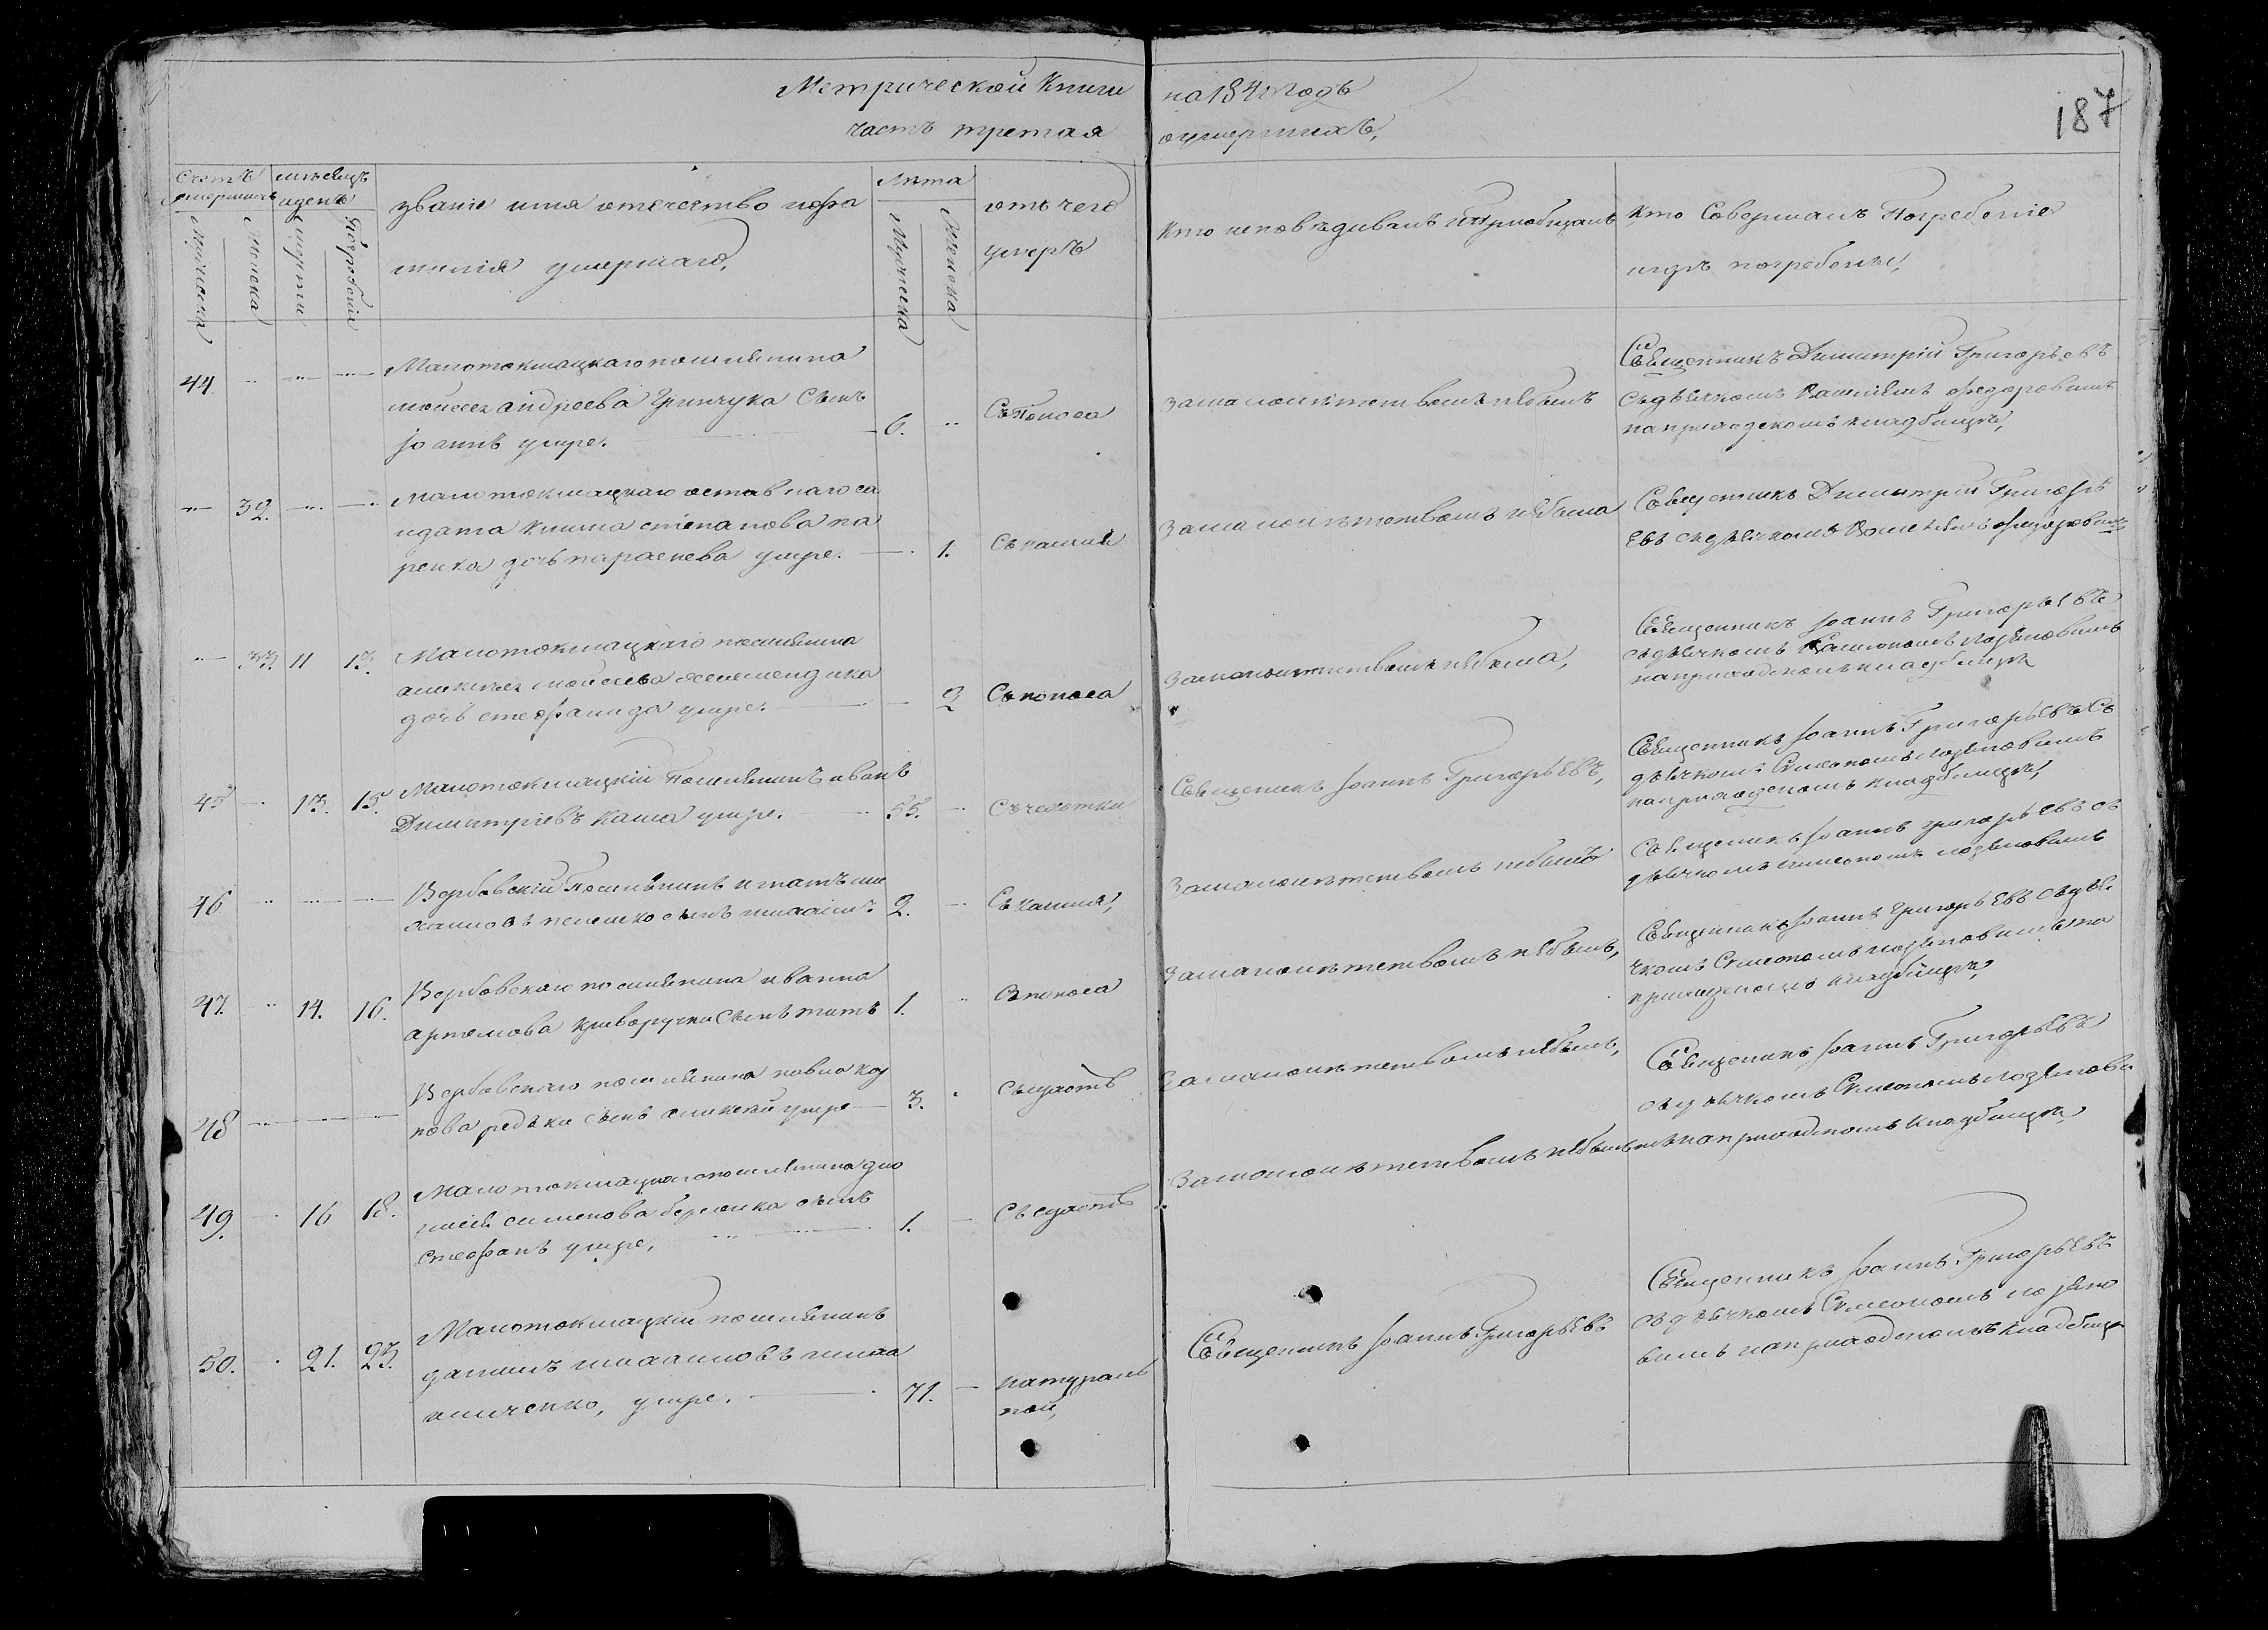 Метрической Книги на 184 годъ
187
часть третая оумершихъ,
Счетъ умершихъ
Мужеска
Женска
мѣсяцъ и день
смерти
погребенія
званіе имя отечество и фа
милія умершаго,
Лѣта
Мужеска
Женска
отъ чего
умеръ
Кто исповѣдывалъ и Приобщалъ
Кто Совершалъ Погребеніе
и гдѣ погребены,
44
Малотокмацкаго поселянина
моисея андреева Гринчука Сынъ
Іоаннъ умре.
6.
Съ Поноса
за малолѣтствомъ не былъ
Священникъ Димитрій Григорьевъ
съ дьячкомъ федоровымъ
на приходскомъ кладбищѣ,
32.
малотокмацкаго оставнаго са
лдата клима степанова па
ренка дочь параскева умре.
1.
Съ кашля
за малолѣтствомъ не была
Священникъ Димитрій Григорь
евъ съ дьячкомъ федоровымъ
33. 11 13.
Малотокмацкаго поселянина
алексея моисеева
дочь стефанида умре.
2
Съ поноса
за малолѣтствомъ не была,
Священникъ Іоаннъ Григорьевъ
съ дьячкомъ Симеономъ Лозяновымъ
на приходскомъ кладбищѣ
45 13. 15.
Малотокмацкій Поселянинъ иванъ
Димитріевъ Каша умре.
55.
Съ чехотки
Священникъ Іоаннъ Григорьевъ,
Священникъ Іоаннъ Григорьевъ Съ
дьячкомъ Симеономъ Лозяновымъ
на приходскомъ кладбищѣ,
46
Вербовскій Поселянинъ игнатъ ми
хаиловъ сынъ михаилъ
2.
Съ кашля,
За малолѣтствомъ не былъ
Священникъ Іоаннъ григорьевъ съ
дьячкомъ симеономъ лозяновымъ
47. 14. 16.
Вербовскаго поселянина ивана
артемова криворучки Сынъ титъ
1.
Съ поноса
За малолѣтствомъ не былъ,
Священникъ Іоаннъ Григорьевъ съ дья
чкомъ Симеономъ лозяновымъ на
приходскомъ кладбищѣ,
48
Вербовскаго поселянина павла
нова редьки сынъ алексей умре
3.
За малолѣтствомъ не былъ,
Священникъ Іоаннъ Григорьевъ
съ дьячкомъ Симеономъ Лозянови
мъ на приходскомъ кладбищѣ,
49. 16 18.
Малотокмацкаго поселянина дио
нисія сименова сынъ
Стефанъ умре,
1.
За малолѣтствомъ не былъ
50. 21. 23.
Малотокмацкій поселянинъ
данилъ михаиловъ миха
йличенко, умре.
71.
натураль
ной,
Священникъ Іоаннъ Григорьевъ
Священникъ Іоаннъ Григорьевъ
съ дьячкомъ Симеономъ лозяно
вымъ на приходскомъ кладбищѣ